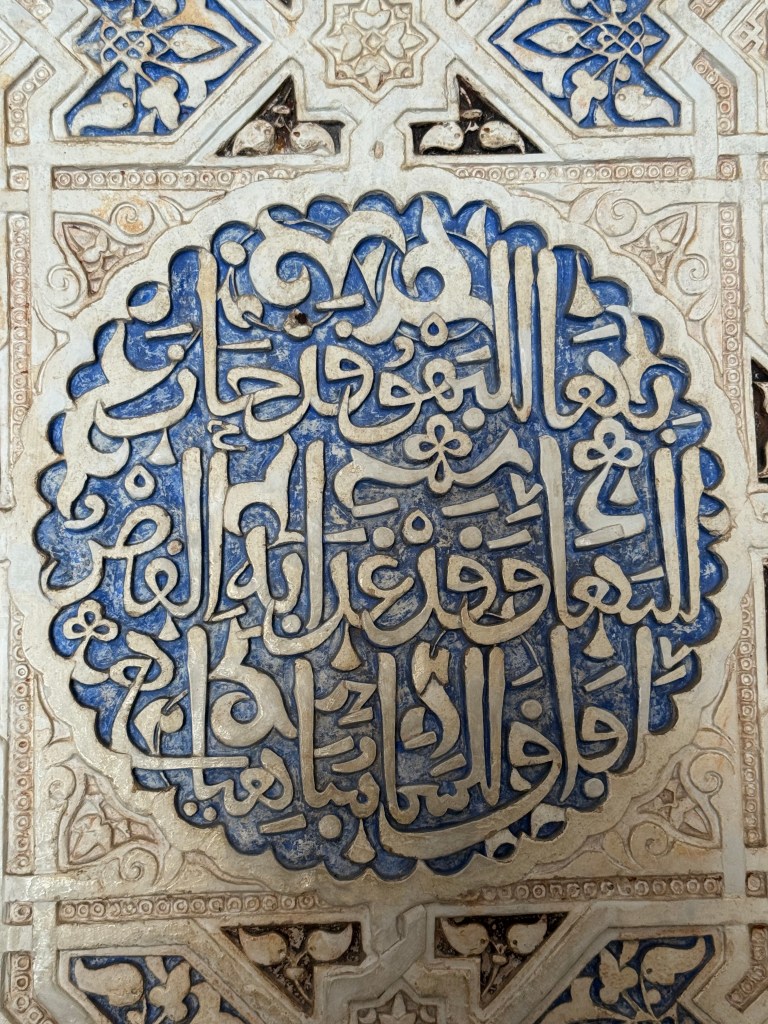 بِهَا الْبَهْوُ قَدْ حَازَ
الْبَهَاءَ وَقَدْ غَدَا بِهِ الْقَصْرُ
ءَافَاقَ السَّمَاءِ مُبَاهِيَا